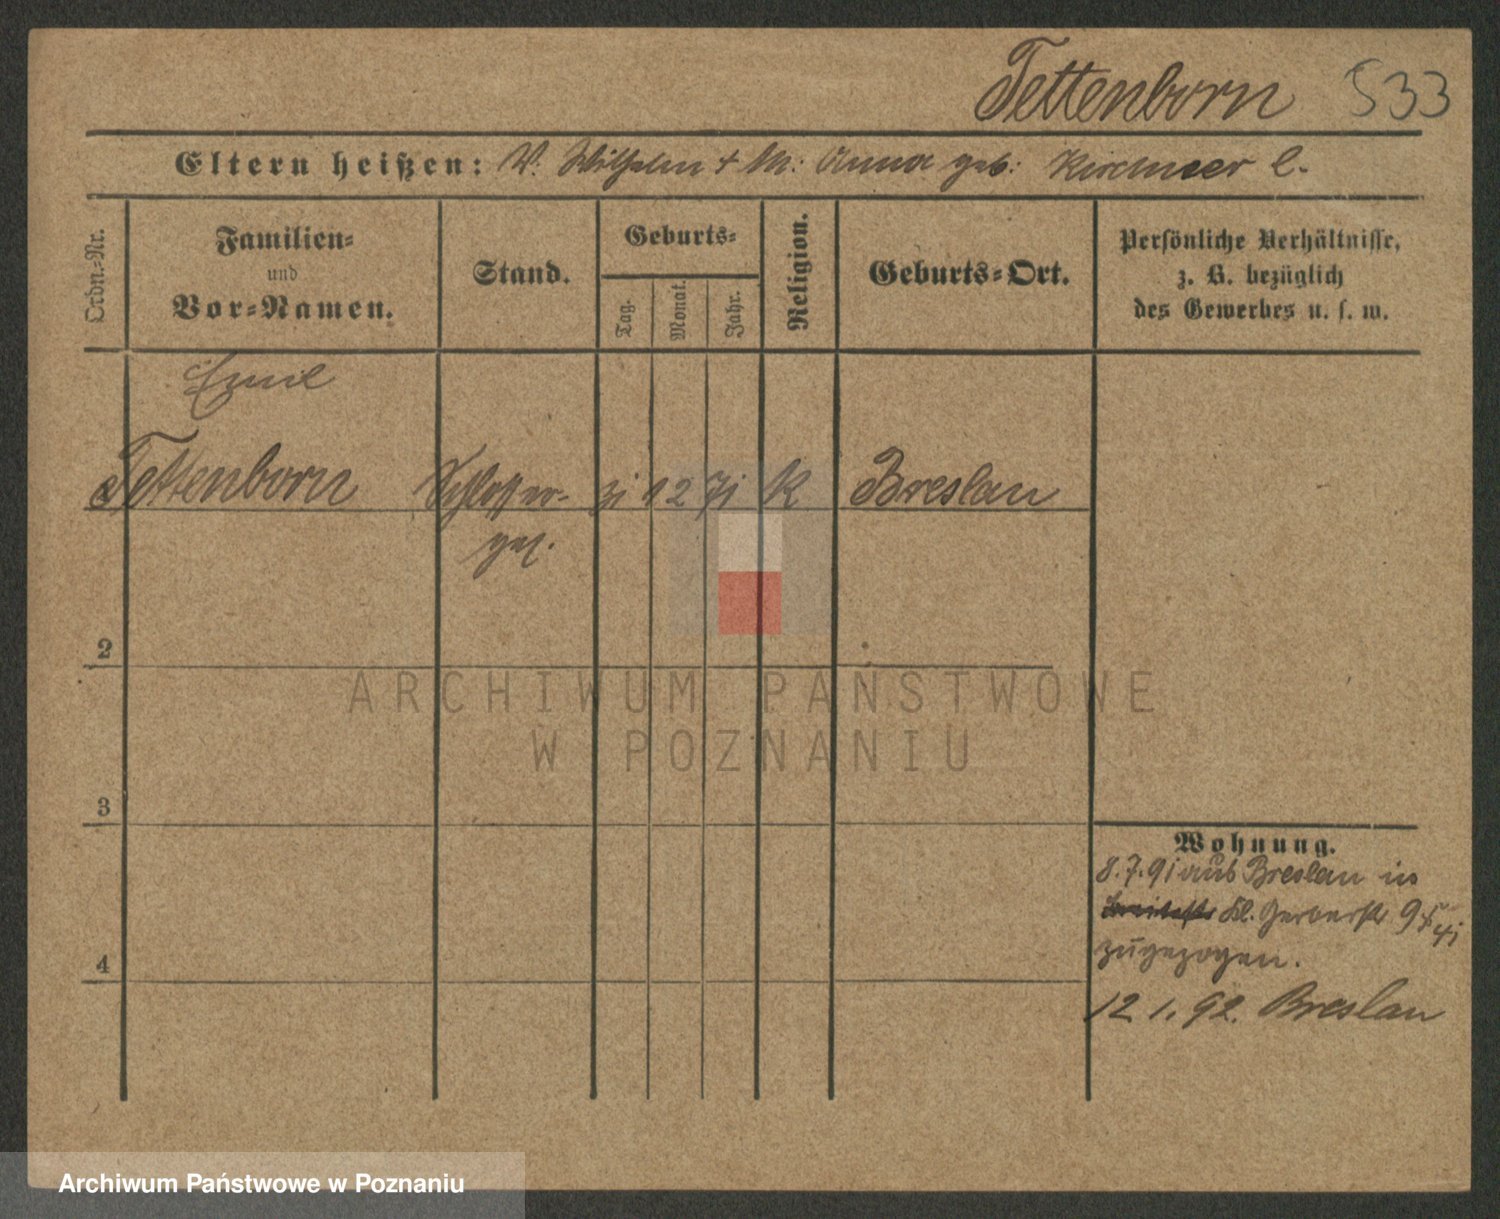 Tettenborn 533
Eltern heißen: V. Wilhelm + M: Anna geb: Kirchner l.
Ordn.-Nr.
Familien-
und
Vor-Namen.
Stand.
Geburts-
Tag.
Monat.
Jahr.
Religion.
Geburts-Ort.
Persönliche Verhältnisse,
z. B. bezüglich
des Gewerbes u. s. w.
Emil
Tettenborn Schlosser- 31 12 71 K Breslau
ges.
2
ARCHIWUM PAŃSTWOWE
W POZNANIU
3
Wohnung.
8.7.91 aus Breslau in
Kl. Gerberstr 9
zugezogen.
4
12 1. 92. Breslau
Archiwum Państwowe w Poznaniu